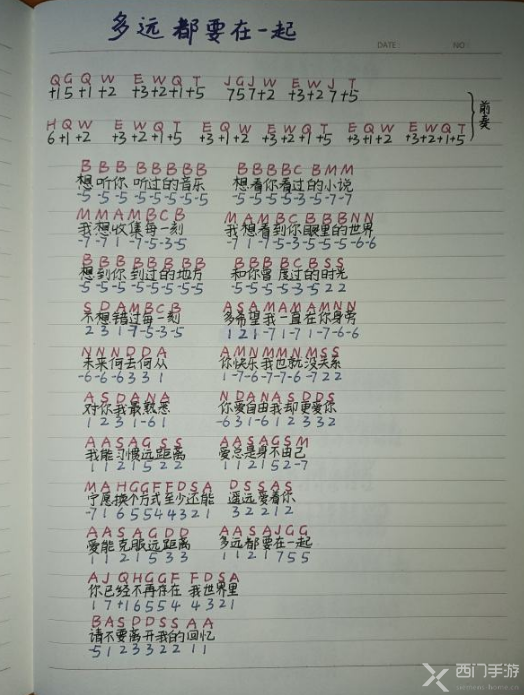 多远都要在一起
DATE NO
QGQW EWQT JGJW EWJT
+15+1+2 +3+2+1+5 757+2 +3+27+5
前奏
HQW EWQT EQW EWQT EQW EWQT
6+1+2 +3+2+1+5 +3+1+2 +3+2+1+5 +3+1+2 +3+2+1+5
BBB BBBBB BBBBCBMM
想听你 听过的音乐 想看你看过的小说
-5-5-5-5-5-5-5-5 -5-5-5-5-3-5-7-7
MMAMBCB MAMBCBBBNN
我想收集每一刻 我想看到你眼里的世界
-7-71-7-5-3-5 -71-7-5-3-5-5-5-6-6
BBBBBBBB BBBBCBSS
想到你到过的地方 和你曾度过的时光
-5-5-5-5-5-5-5-5 -5-5-5-5-3-522
SDAMBCB ASAMAMAMNN
不想错过每一刻 多希望我一直在你身旁
231-7-5-3-5 121-71-71-7-6-6
NNNDDA AMNMMNMSS
未来何去何从 你快乐我也就没关系
-6-6-6331 1-7-6-7-7-6-722
ASDANA NDANASDDS
对你我最熟悉 你爱自由我却更爱你
1231-61 -631-612332
AASAGSS AASAGSM
我能习惯远距离 爱总是身不由己
1121522 112152-7
MAHGGFFDSA DSSAS
宁愿换个方式至少还能 遥远爱着你
-7165544321 32212
AASAGDD AASAJGG
爱能克服远距离 多远都要在一起
1121533 1121755
AJQHGGF FDSA
你已经不再存在 我世界里
17+16554 4321
BASDDSSAA
请不要离开我的回忆
-512332211
西门手游